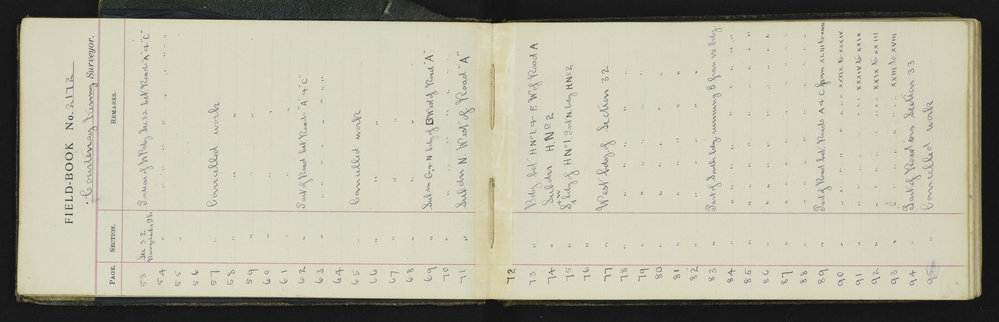 FIELD-BOOK No. 2172
Courtenay Kenny Surveyor.
PAGE. SECTION. REMARKS.
53 Sec 32
54 " " " " "
55 " " " " "
56 " " "
57 " Cancelled work
58 " " "
59 " " "
60 " " "
61 " " "
62 " Part of Road bet Road "A & C"
63 " " " " "
64
65 " Cancelled work
66 " " "
67 " " "
68 " " "
69 " N bdy of B West of Road "A"
70 " " " " "
71 " Subdn N. West of Road "A"
72
73 " Bdy bet H No 1 & F. W of Road A
74 " Subdn H. No 2
75 " bdy of H No 1 and N. bdy H No 2
76 " " "
77 " West bdy of Section 32
78 " " " " "
79 " " " " "
80 " " " " "
81 " " " " "
82 " " " " "
83 " Part of South bdy running E from W bdy
84 " " " " " "
85 " " " " " "
86 " " " " " "
87 " " " " " "
88 " " " " " "
89 " Part of Road bet. Roads A & C from XLIII to
90 " " " " " XXIX to XXXIV
91 " " " " " XXXIV to XXIX
92 " " " " " XXIX to XXIII
93 " " " " " XXIII to XVIII
94 " Part of Road on Section 33
95 " Cancelled work